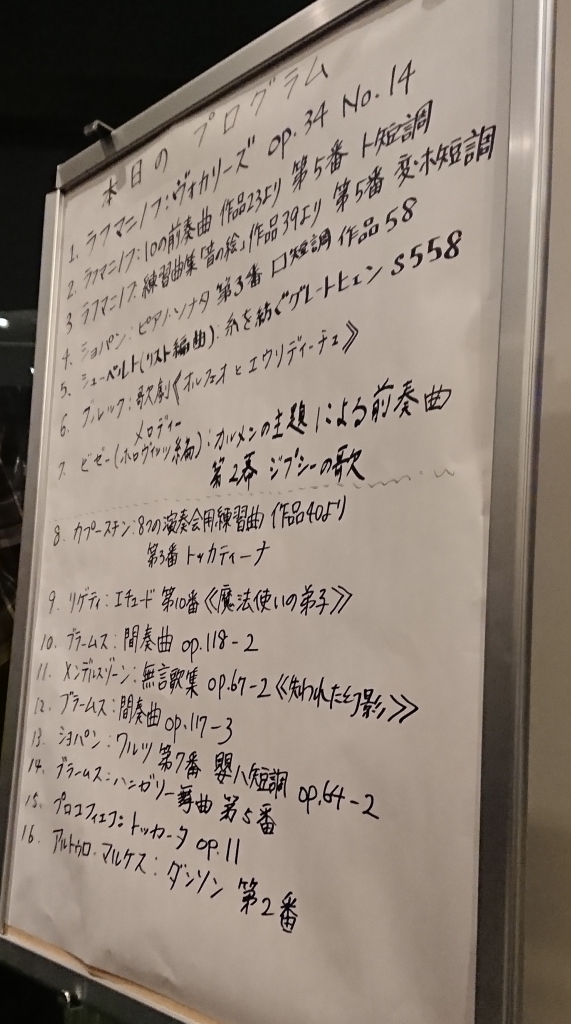 本日の プログラム
1. ラフマニノフ:ヴォカリーズ op.34 No.14
2. ラフマニノフ:10の前奏曲 作品23より 第5番 ト短調
3. ラフマニノフ:練習曲集「音の絵」作品39より 第5番 変ホ短調
4. ショパン:ピアノ・ソナタ 第3番 ロ短調 作品58
5. シューベルト(リスト編曲):糸を紡ぐグレートヒェン S558
6. グルック:歌劇《オルフェオとエウリディーチェ》
メロディー
7. ビゼー(ホロヴィッツ編):カルメンの主題による前奏曲
第2幕 ジプシーの歌
8. カプースチン:8つの演奏会用練習曲 作品40より
第3番 トッカティーナ
9. リゲティ:エチュード 第10番《魔法使いの弟子》
10. ブラームス:間奏曲 op.118-2
11. メンデルスゾーン:無言歌集 op.67-2《失われた幻影》
12. ブラームス:間奏曲 op.117-3
13. ショパン:ワルツ 第7番 嬰ハ短調 op.64-2
14. ブラームス:ハンガリー舞曲 第5番
15. プロコフィエフ:トッカータ op.11
16. アルトゥロ・マルケス:ダンソン 第2番